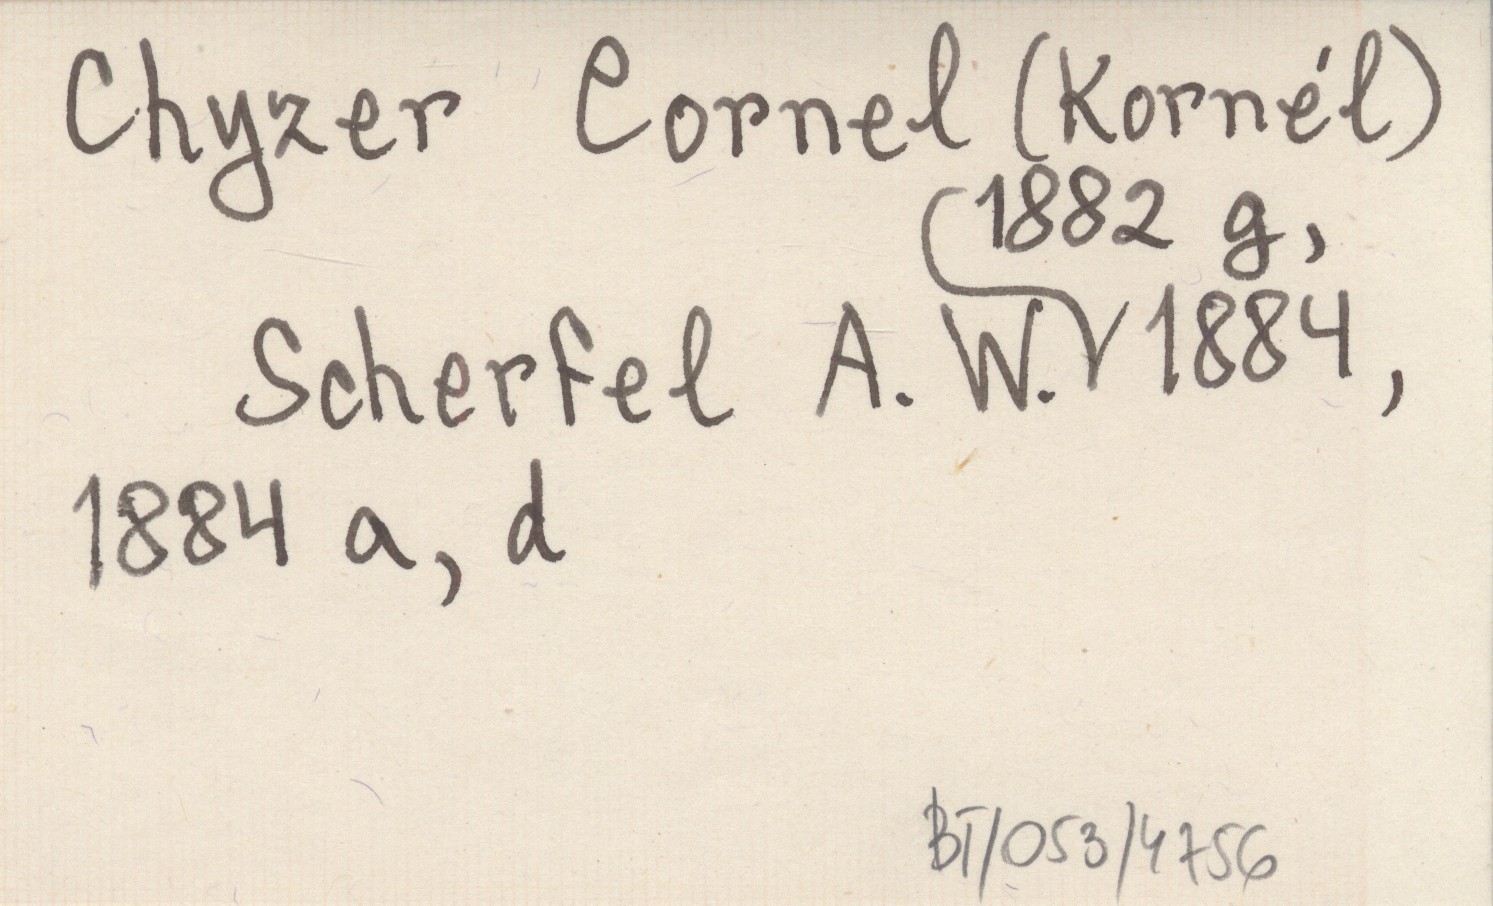 Chyzer Cornel (Kornél)
1882 g,
Scherfel A. W. 1884,
1884 a, d
BT/053/4756